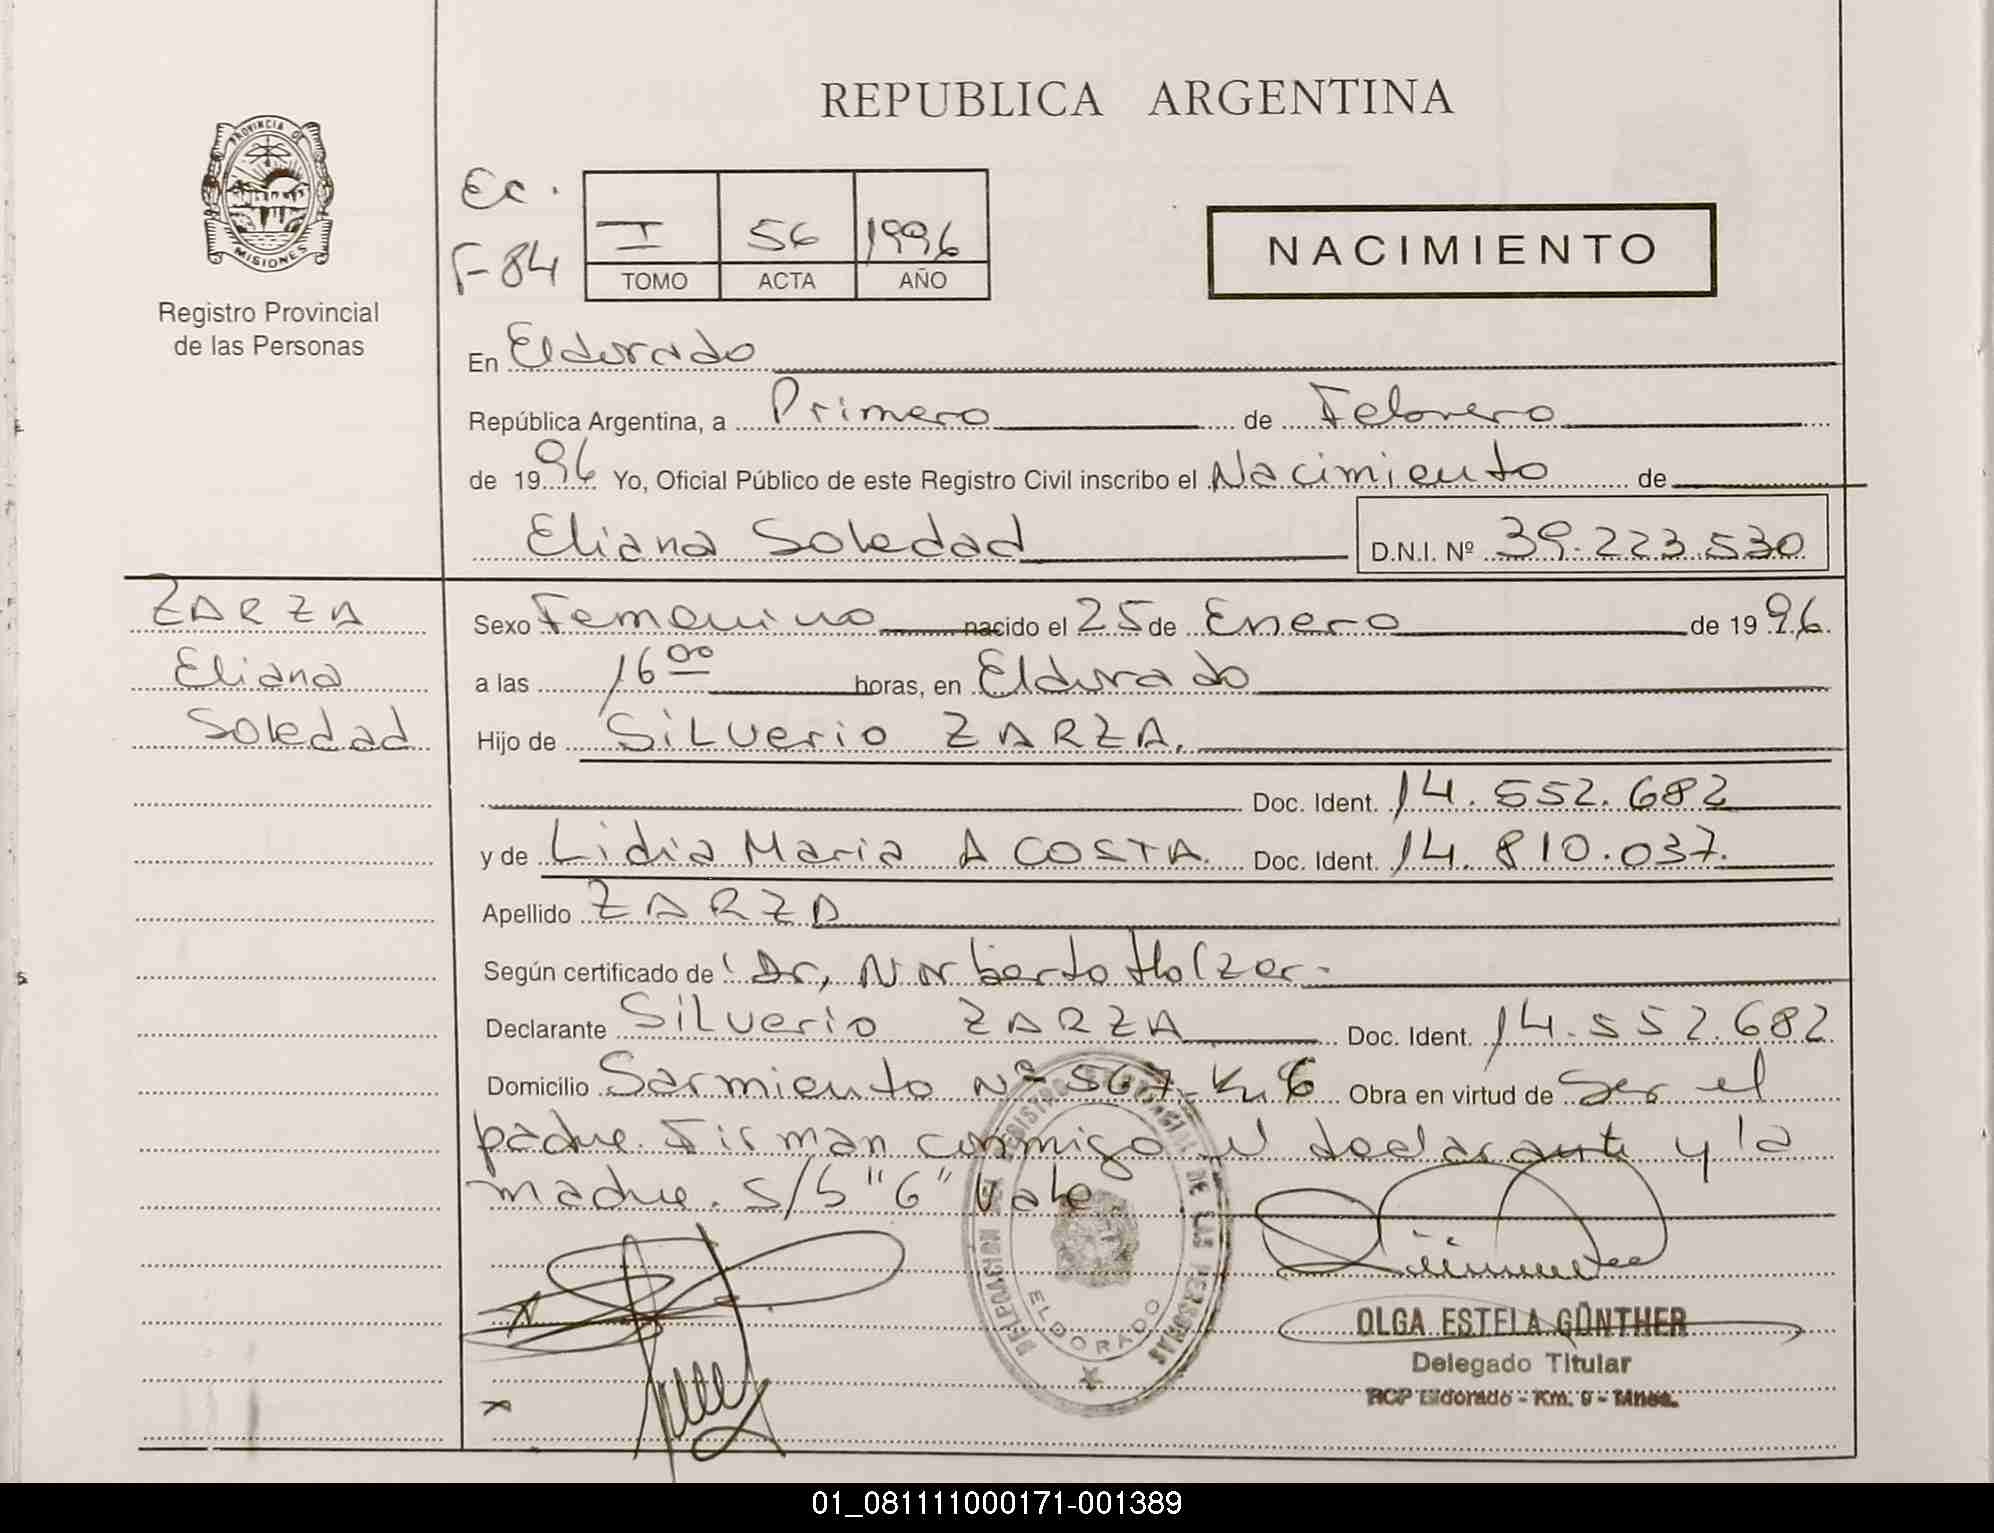 REPUBLICA ARGENTINA
PROVINCIA DE
MISIONES
Registro Provincial
de las Personas
Ec.
F-84
I 56 1996
TOMO ACTA AÑO
NACIMIENTO
En Eldorado
República Argentina, a Primero de Febrero
de 1996 Yo, Oficial Público de este Registro Civil inscribo el Nacimiento de
Eliana Soledad D.N.I. Nº 39.223.530
ZARZA
Eliana
Soledad
Sexo Femenino nacido el 25 de Enero de 1996.
a las 16 00 horas, en Eldorado
Hijo de Silverio ZARZA.
Doc. Ident. 14.552.682
y de Lidia Maria ACOSTA. Doc. Ident. 14.810.037.
Apellido ZARZA
Según certificado de: Dr, Norberto Holzer.-
Declarante Silverio ZARZA Doc. Ident. 14.552.682
Domicilio Sarmiento Nº 567-Km 6 Obra en virtud de Ser el
padre. Firman conmigo el declarante y la
madre. S/b "6" Vale
DELEGACION DEL REGISTRO PROVINCIAL DE LAS PERSONAS
ELDORADO
OLGA ESTELA GÜNTHER
Delegado Titular
RCP Eldorado - Km. 9 - Mnes.
01_081111000171-001389